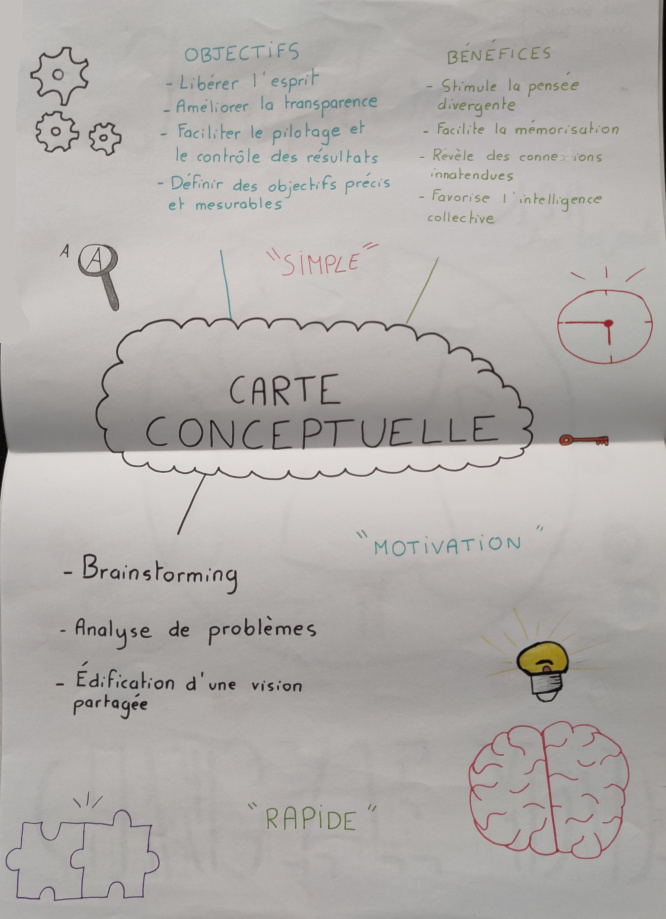 OBJECTIFS
- Libérer l'esprit
- Améliorer la transparence
- Faciliter le pilotage et
le contrôle des résultats
- Définir des objectifs précis
et mesurables
BÉNÉFICES
- Stimule la pensée
divergente
- Facilite la mémorisation
- Révèle des connexions
innatendues
- Favorise l'intelligence
collective
A A
"SIMPLE"
CARTE
CONCEPTUELLE
"MOTIVATION"
- Brainstorming
- Analyse de problèmes
- Édification d'une vision
partagée
"RAPIDE"